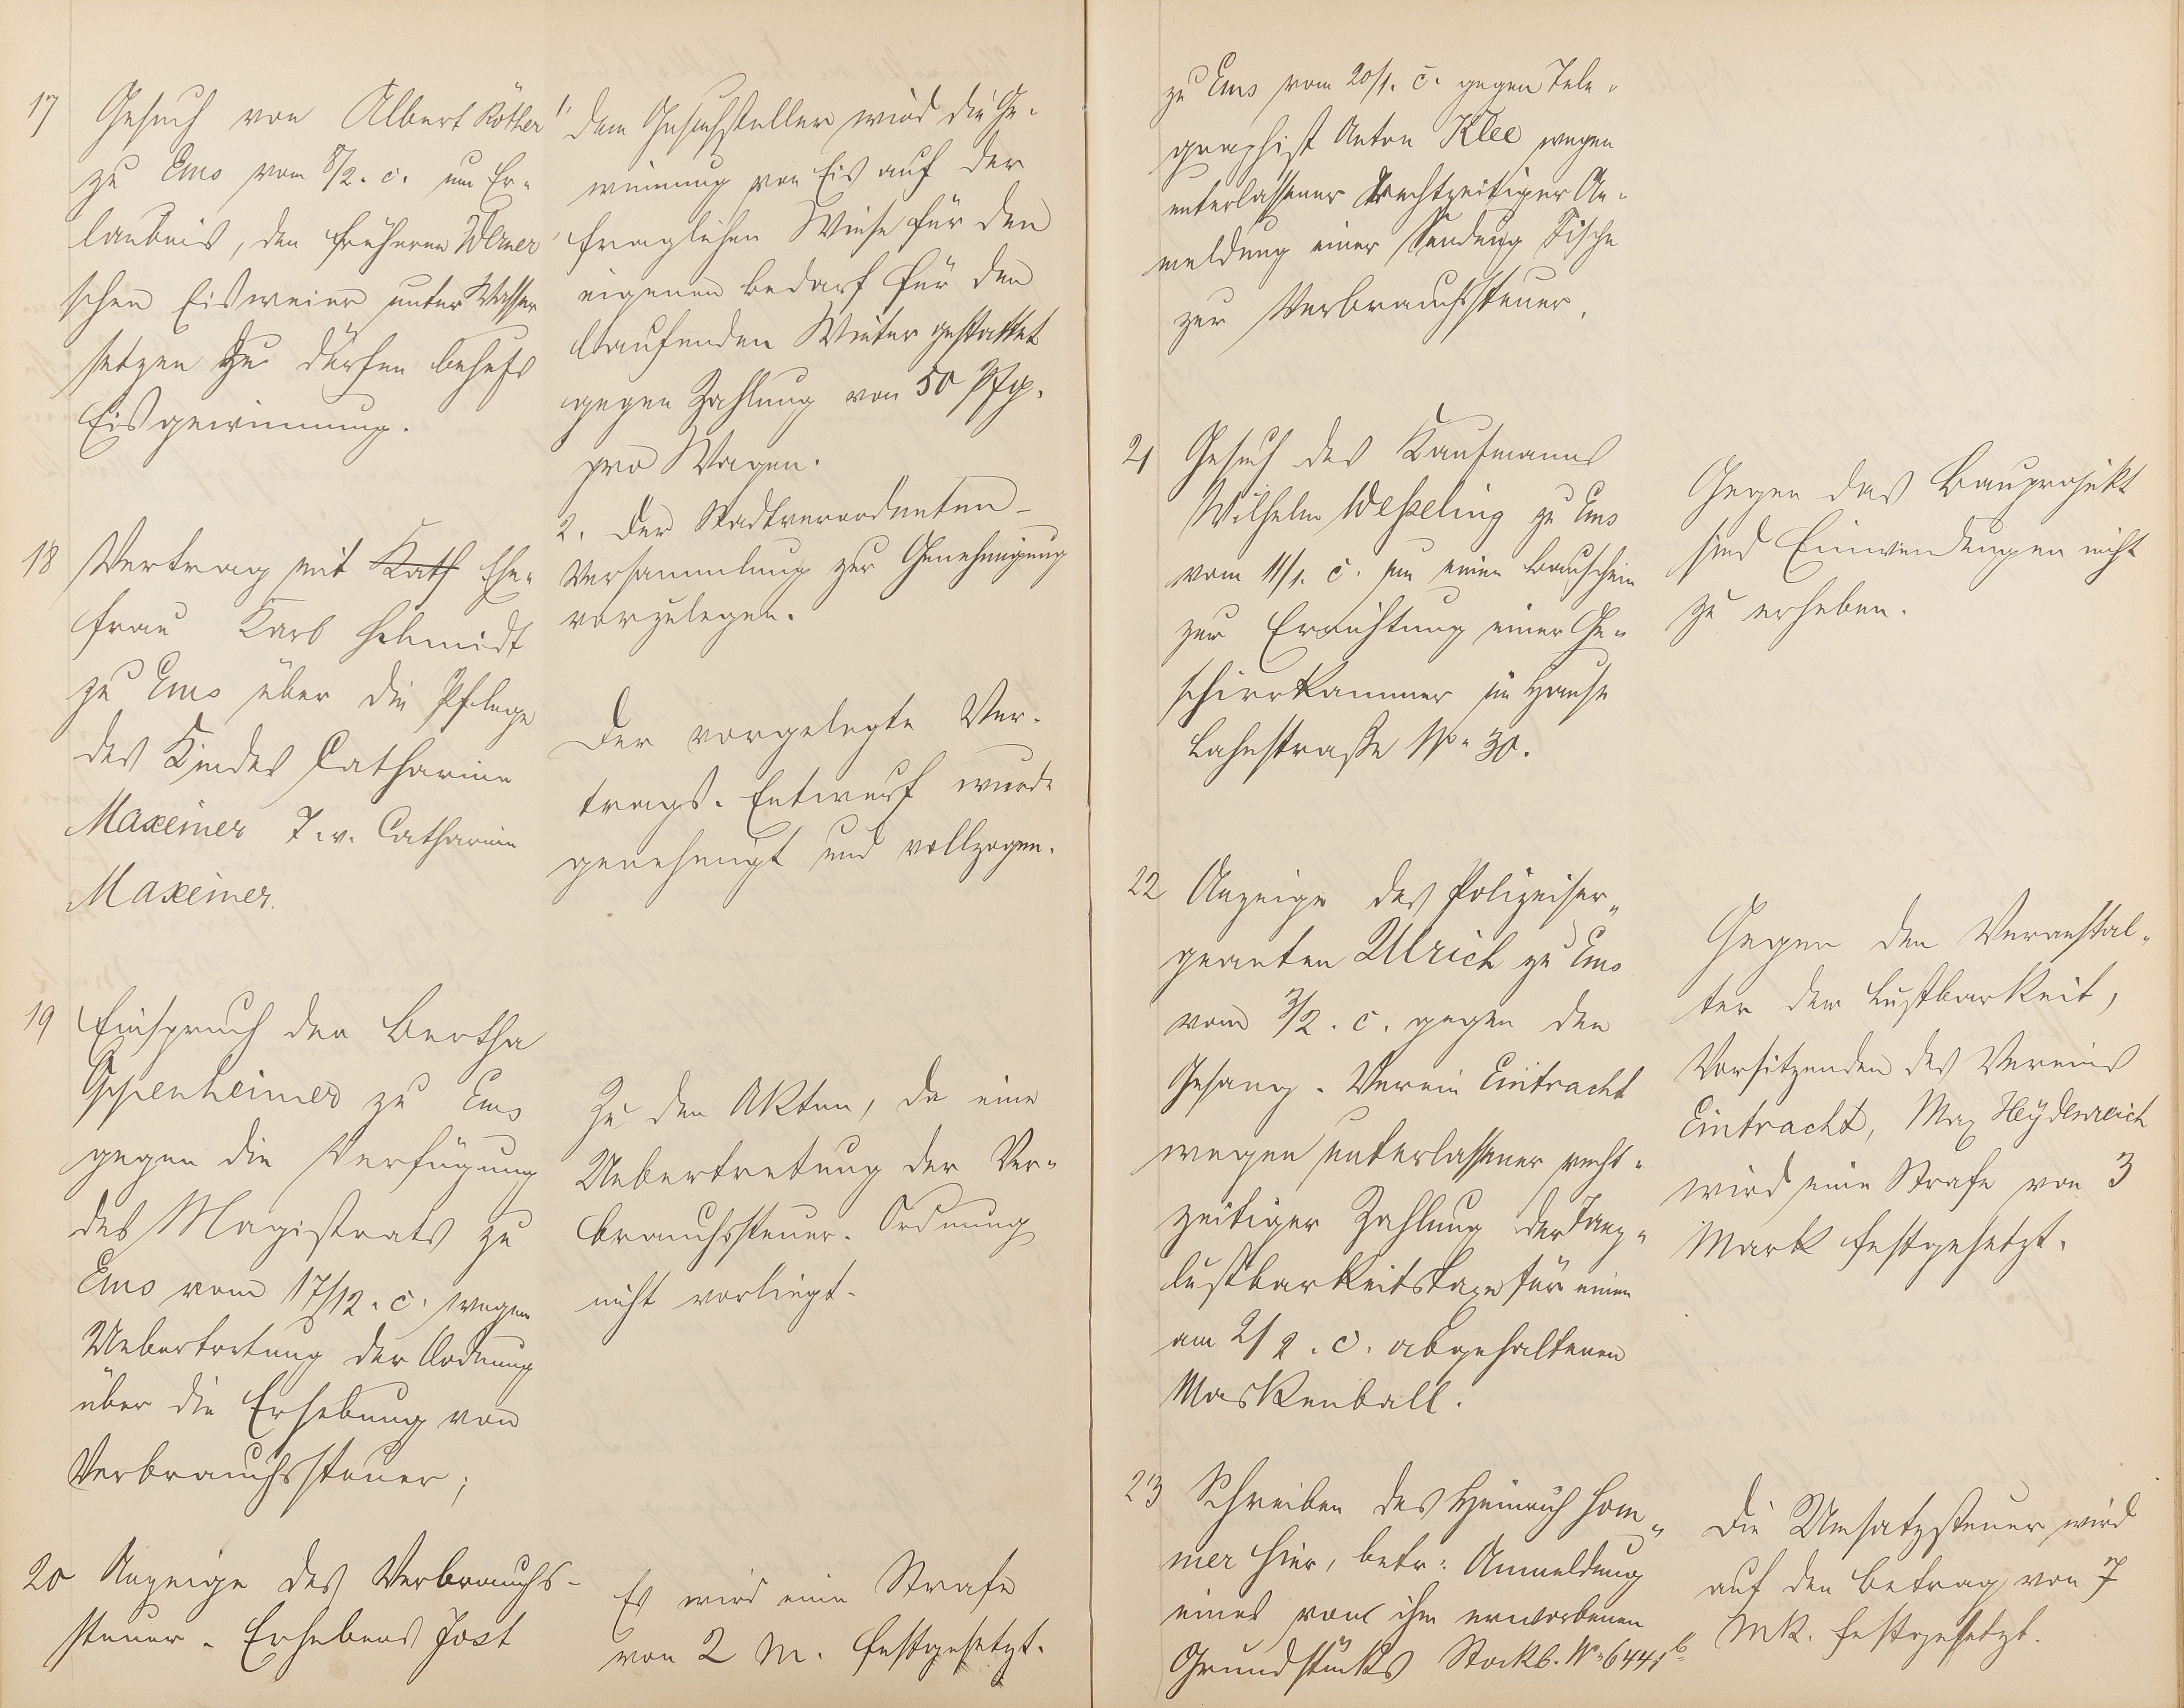 17
Gesuch von Albert Köther
zu Ems vom 8/2. c. um Er-
laubnis, den früheren Werner'
schen Eisweier unter Wasser
setzen zu dürfen behufs
Eisgewinnung.
1. Dem Gesuchsteller wird die Ge-
winnung von Eis auf der
fraglichen Wiese für den
eigenen Bedarf für den
laufenden Winter gestattet
gegen Zahlung von 50 Pfg.
pro Wagen.
2. Der Stadtverordneten-
Versammlung zur Genehmigung
vorzulegen.
18
Vertrag mit Kath Ehe-
frau Karl Schmidt
zu Ems über die Pflege
des Kindes Catharine
Maxeiner T. v. Catharine
Maxeiner.
Der vorgelegte Ver-
trags-Entwurf wurde
genehmigt und vollzogen.
19
Einspruch der Bertha
Oppenheimer zu Ems
gegen die Verfügung
des Magistrats zu
Ems vom 17/12. c. wegen
Uebertretung der Ordnung
über die Erhebung von
Verbrauchssteuer;
Zu den Akten, da eine
Uebertretung der Ver-
brauchssteuer-Ordnung
nicht vorliegt.
20
Anzeige des Verbrauchs-
steuer-Erhebers Jost
Es wird eine Strafe
von 2 M. festgesetzt.
zu Ems vom 20/1. c. gegen Tele-
graphist Anton Klee wegen
unterlassener rechtzeitiger An-
meldung einer Sendung Fische
zur Verbrauchssteuer.
21
Gesuch des Kaufmanns
Wilhelm Weßeling zu Ems
vom 11/1. c. um einen Bauschein
zur Errichtung einer Ge-
schirrkammer im Hause
Lahnstraße No. 30.
Gegen das Bauprojekt
sind Einwendungen nicht
zu erheben.
22
Anzeige des Polizeiser-
geanten Ulrich zu Ems
vom 3/2. c. gegen den
Gesang-Verein Eintracht
wegen unterlassener recht-
zeitiger Zahlung der Tanz-
lustbarkeitstaxe für einen
am 2/2. c. abgehaltenen
Maskenball.
Gegen den Veranstal-
ter der Lustbarkeit,
Vorsitzenden des Vereins
Eintracht, Max Heydenreich
wird eine Strafe von 3
Mark festgesetzt.
23
Schreiben des Heinrich Hom-
mer hier, betr: Anmeldung
eines von ihm erworbenen
Grundstücks Stockb. No. 6441 b
Die Umsatzsteuer wird
auf den Betrag von 7
Mk. festgesetzt.